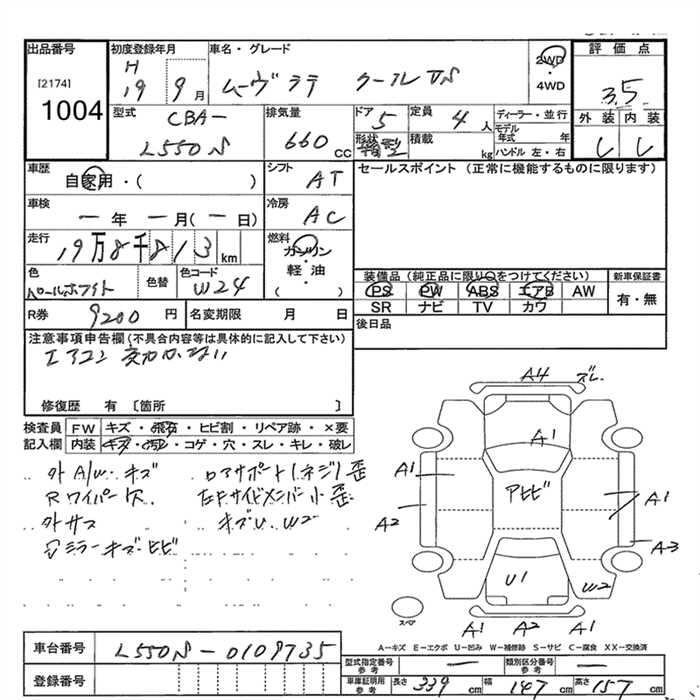 出品番号
[2174]
1004
初度登録年月
H
19 9月
車名・グレード
ムーヴラテ クールVS
2WD
・
4WD
評価点
3.5
外装 内装
型式
CBA-
L550S
排気量
660 CC
ドア
5
形状
箱型
定員
4 人
積載
kg
ディーラー・並行
モデル年式 年
ハンドル 左・右
車歴
自家用・( )
シフト
AT
セールスポイント (正常に機能するものに限ります)
車検
一年一月(一日)
冷房
AC
走行
19万8千813km
燃料
ガソリン
・
軽油
( )
色
パールホワイト
色替
色コード
W24
装備品(純正品に限り○をつけてください)
PS PW ABS エアB AW
SR ナビ TV カワ
新車保証書
有・無
R券
9200 円
名変期限 月 日
後日品
注意事項申告欄(不具合内容等は具体的に記入して下さい)
エアコン効かない
修復歴 有 〔箇所 〕
検査員
記入欄
FW キズ・飛石・ヒビ割・リペア跡・×要
内装 キズ・汚レ・コゲ・穴・スレ・キレ・破レ
外 A/W. キズ
Rワイパー欠
外サス
ミラーキズ・ヒビ
ロアサポート(ネジ)歪
左Fサイドメンバー小歪
キズU. W2
A4 ズレ
A1
A1
A2
アヒビ
A1
A3
U1
W2
スペア
A1 A2 A1
A-キズ E-エクボ U-凹み W-補修跡 S-サビ C-腐食 XX-交換済
車台番号
L550S-0109735
登録番号
型式指定番号
参考
一
類別区分番号
参考
一
車庫証明用
参考
長さ 339 cm 幅 147 cm 高さ 157 cm